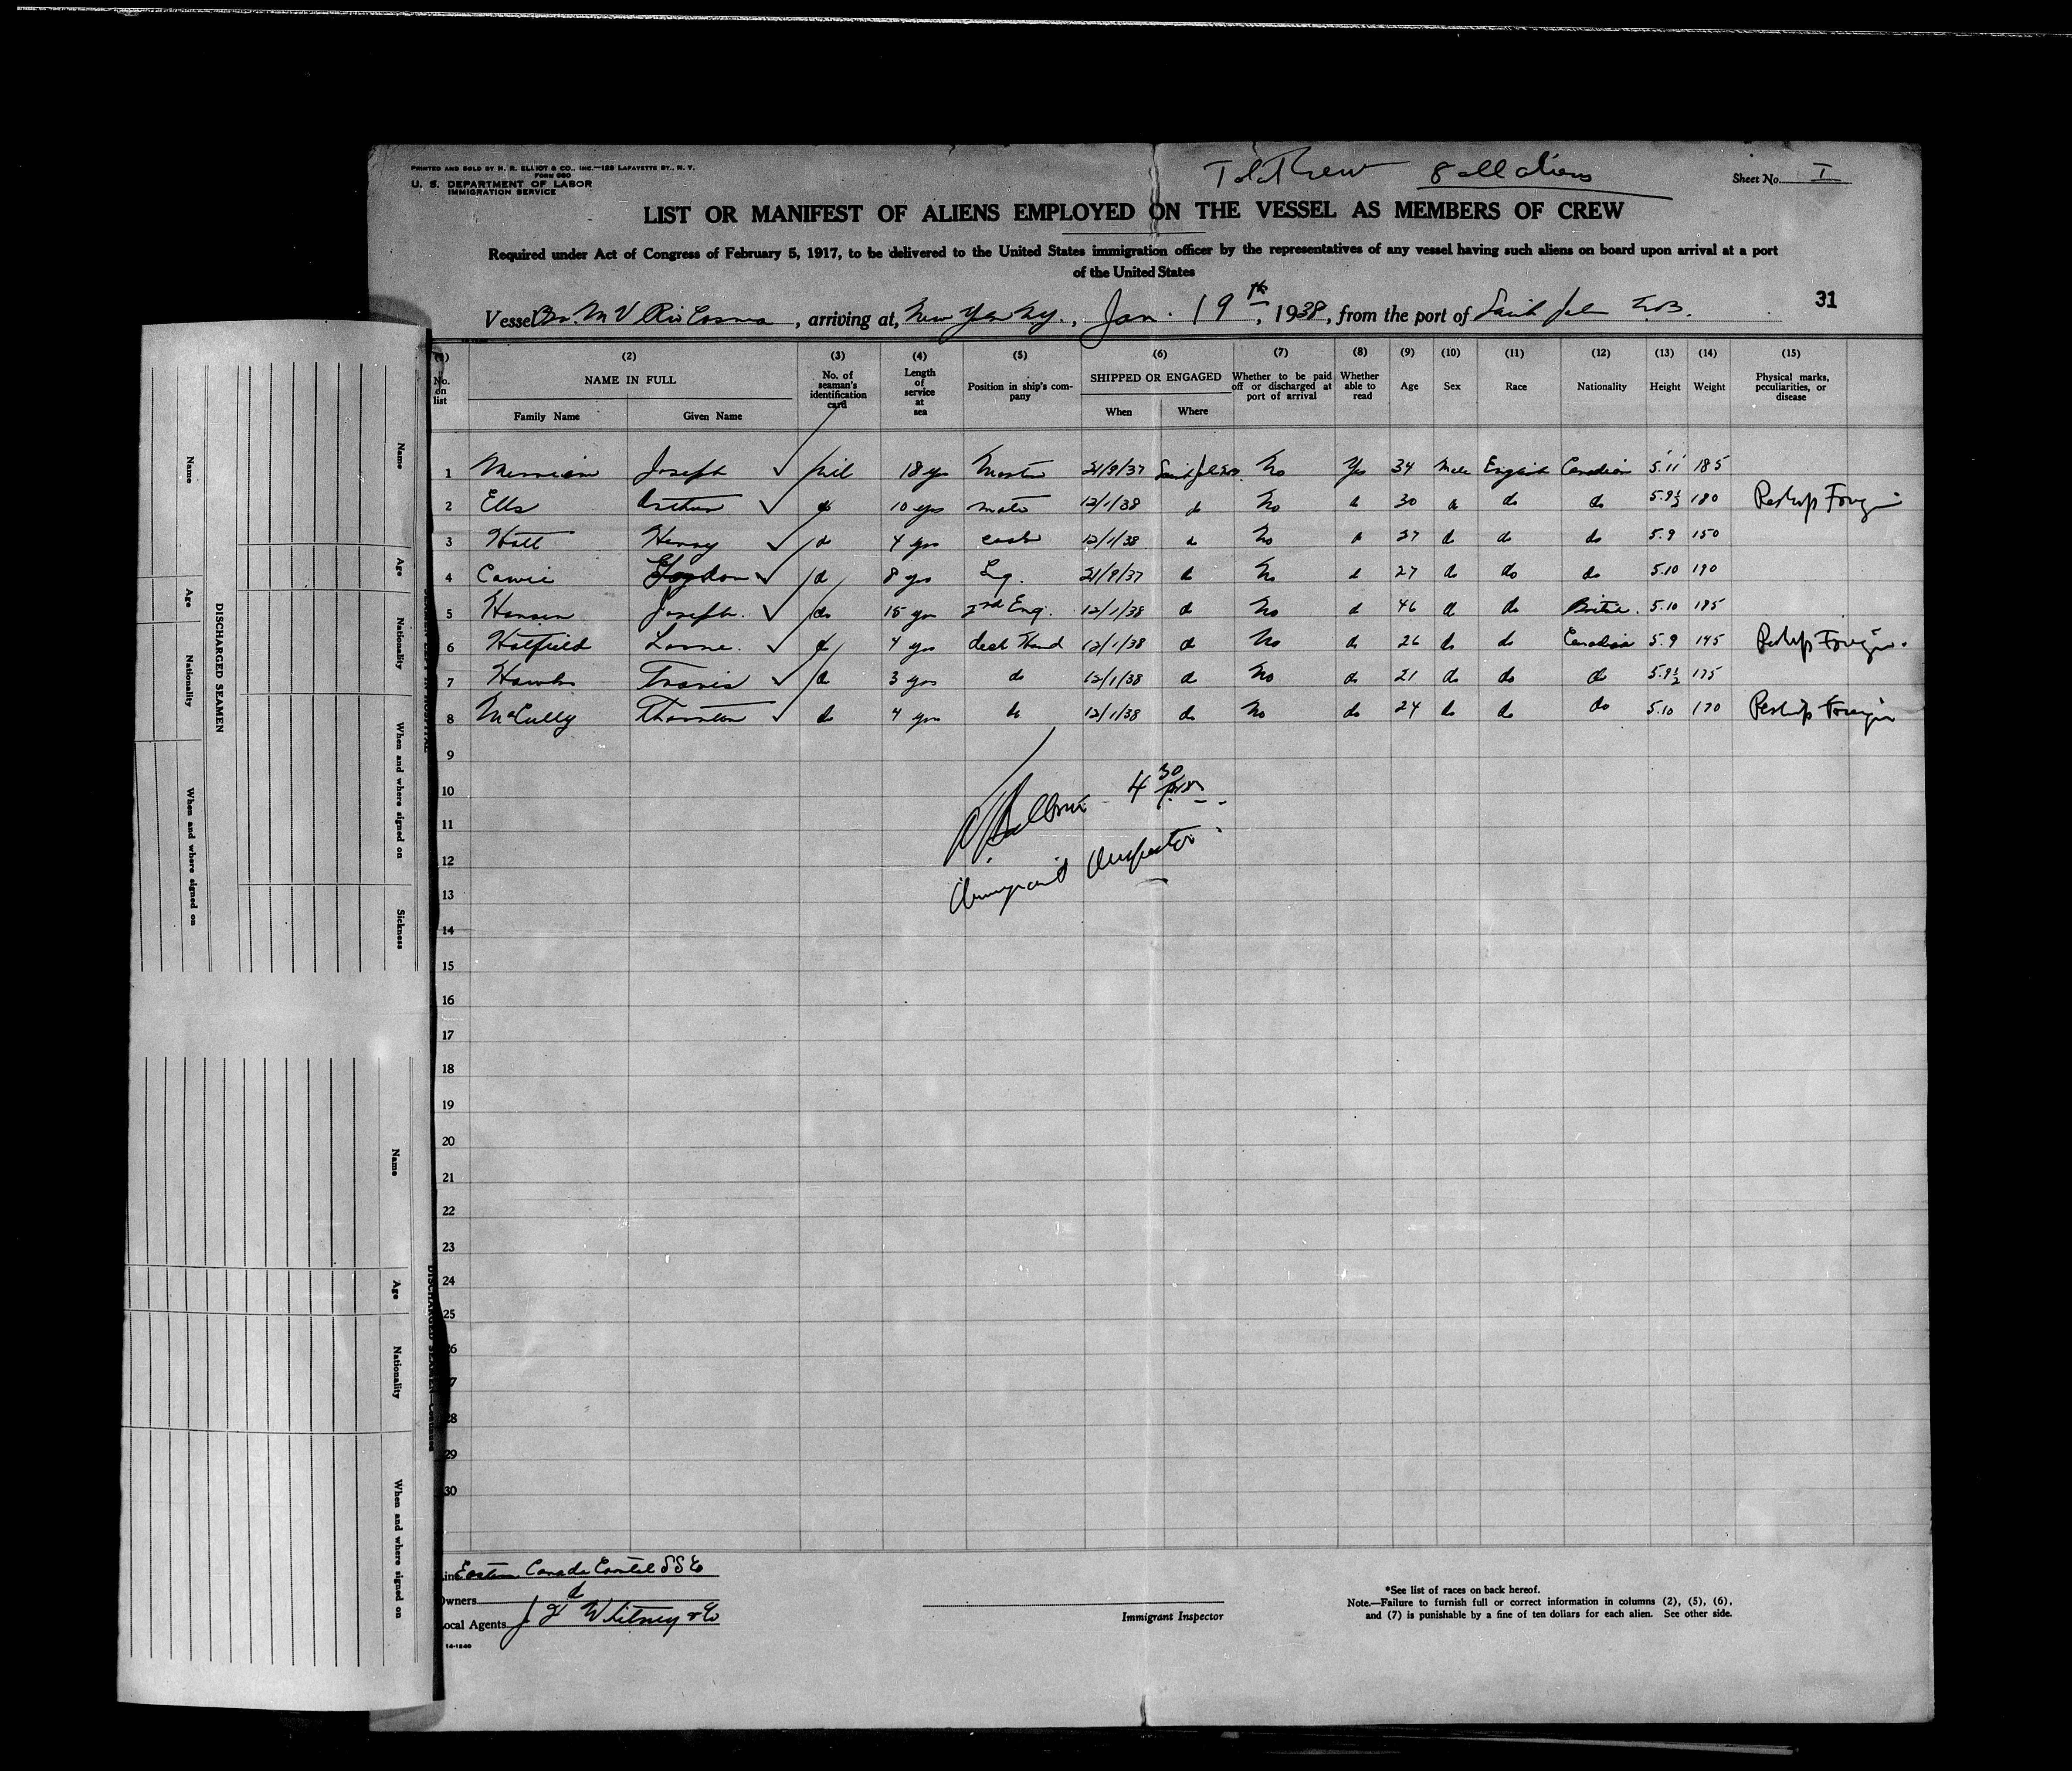 PRINTED AND SOLD BY H. R. ELLIOT & CO., INC.—129 LAFAYETTE ST., N. Y.
FORM 680
U. S. DEPARTMENT OF LABOR
IMMIGRATION SERVICE
Total Crew 8 all aliens
Sheet No. I
LIST OR MANIFEST OF ALIENS EMPLOYED ON THE VESSEL AS MEMBERS OF CREW
Required under Act of Congress of February 5, 1917, to be delivered to the United States immigration officer by the representatives of any vessel having such aliens on board upon arrival at a port
of the United States
31
Vessel Br. M V Rio, arriving at, New York N.Y., Jan. 19th, 1938, from the port of Saint John N.B.
(1) (2) (3) (4) (5) (6) (7) (8) (9) (10) (11) (12) (13) (14) (15)
No. on list NAME IN FULL Family Name Given Name No. of seaman's identification card Length of service at sea Position in ship's company SHIPPED OR ENGAGED When Where Whether to be paid off or discharged at port of arrival Whether able to read Age Sex Race Nationality Height Weight Physical marks, peculiarities, or disease
1 Merriam Joseph nil 18 yrs Master 21/9/37 Saint John No Yes 34 Male English Canadian 5.11 185
2 Ells Arthur do 10 yrs mate 12/1/38 do No do 30 do do do 5.9½ 180 Reship Foreign
3 Hatt Henry do 4 yrs cook 12/1/38 do No do 27 do do do 5.9 150
4 Cowie do 8 yrs Eng. 21/9/37 do No do 27 do do do 5.10 190
5 Hansen Joseph. do 15 yrs 2nd Eng. 12/1/38 do No do 46 do do British. 5.10 195
6 Hatfield Lorne. do 4 yrs deck Hand 12/1/38 do No do 26 do do Canadian 5.9 145 Reship Foreign.
7 Travis do 3 yrs do 12/1/38 do No do 21 do do do 5.9½ 175
8 McCully Thornton do 4 yrs do 12/1/38 do No do 24 do do do 5.10 170 Reship Foreign
9
10
4 30 P.M.
11
12
Immigrant Inspector
13
14
15
16
17
18
19
20
21
22
23
24
25
26
27
28
29
30
Line Eastern Canada Coastal SS Co
Owners do
Local Agents J H Whitney & Co
14-1240
Immigrant Inspector
*See list of races on back hereof.
Note.—Failure to furnish full or correct information in columns (2), (5), (6),
and (7) is punishable by a fine of ten dollars for each alien. See other side.
DISCHARGED SEAMEN
Name
Age
Nationality
When and where signed on
Name
Age
Nationality
When and where signed on
Sickness
DISCHARGED SEAMEN—Continued
Name
Age
Nationality
When and where signed on